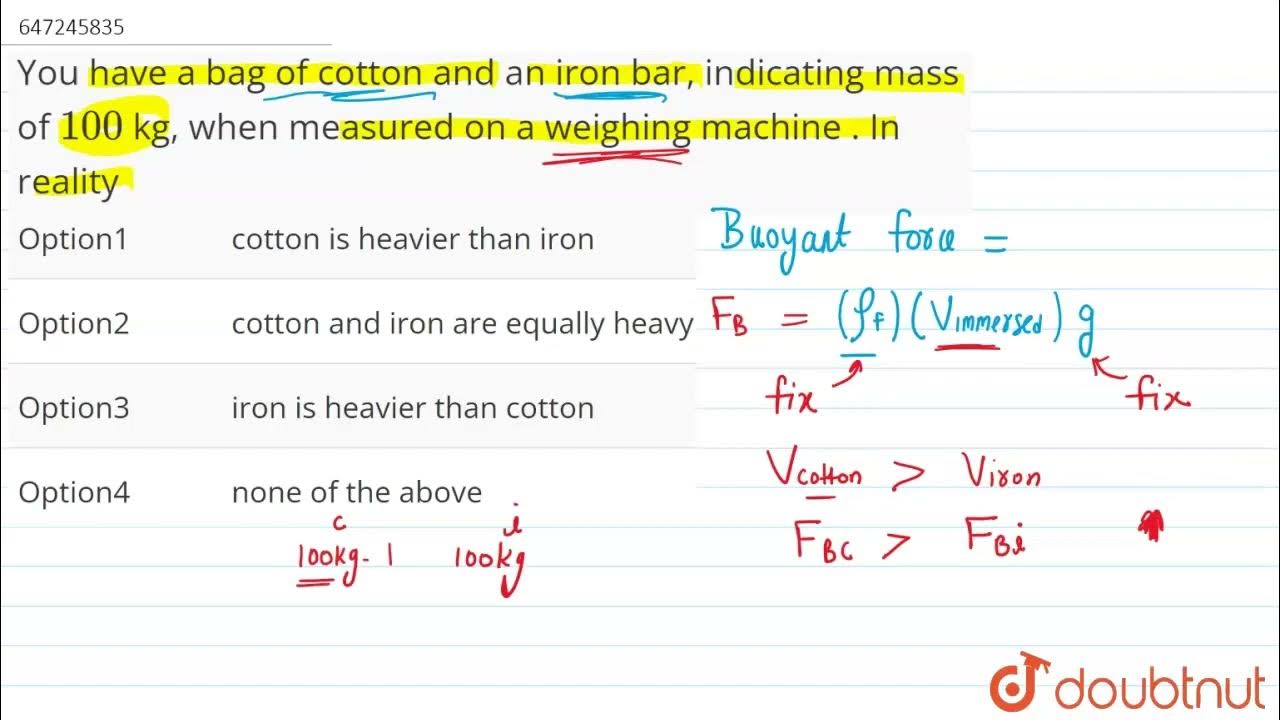 647245835
You have a bag of cotton and an iron bar, indicating mass
of 100 kg, when measured on a weighing machine . In
reality
Option1 cotton is heavier than iron
Option2 cotton and iron are equally heavy
Option3 iron is heavier than cotton
Option4 none of the above
Buoyant force =
F_B = (ρ_f) (V_immersed) g
fix fix
V_cotton > V_iron
F_BC > F_Bi
c i
100kg - 1 100kg
doubtnut